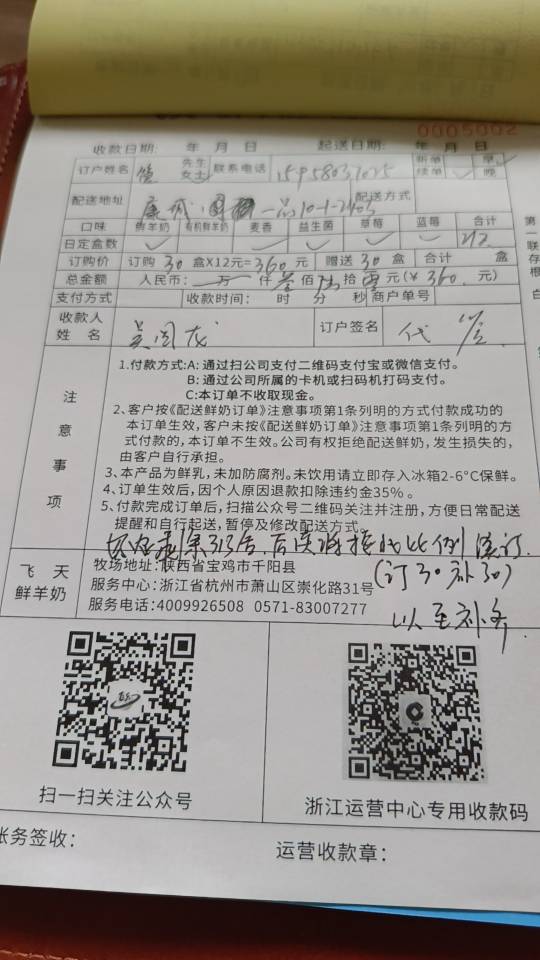 0005002
收款日期: 年 月 日 起送日期: 年 月 日
订户姓名 先生 女士 联系电话 新单 续单 早 晚
配送地址 配送方式
口味 鲜羊奶 有机鲜羊奶 麦香 益生菌 草莓 蓝莓 合计
日定盒数
订购价 订购 30 盒X12元=360元 赠送 30 盒 合计 盒
总金额 人民币: 万 仟 叁佰 陆拾 零元(¥ 360 元)
支付方式 收款时间: 时 分 秒 商户单号
收款人姓名 订户签名
注意事项
1.付款方式:A: 通过扫公司支付二维码支付宝或微信支付。
B: 通过公司所属的卡机或扫码机打码支付。
C:本订单不收取现金。
2、客户按《配送鲜奶订单》注意事项第1条列明的方式付款成功的
本订单生效,客户未按《配送鲜奶订单》注意事项第1条列明的方
式付款的,本订单不生效。公司有权拒绝配送鲜奶,发生损失的,
由客户自行承担。
3、本产品为鲜乳,未加防腐剂。未饮用请立即存入冰箱2-6°C保鲜。
4、订单生效后,因个人原因退款扣除违约金35%。
5、付款完成订单后,扫描公众号二维码关注并注册,方便日常配送
提醒和自行起送,暂停及修改配送方式。
后 按 比例 订
(订30补30)
以至补齐
飞天鲜羊奶
牧场地址:陕西省宝鸡市千阳县
服务中心:浙江省杭州市萧山区崇化路31号
服务电话:4009926508 0571-83007277
扫一扫关注公众号
浙江运营中心专用收款码
账务签收:
运营收款章:
第一联存根
白